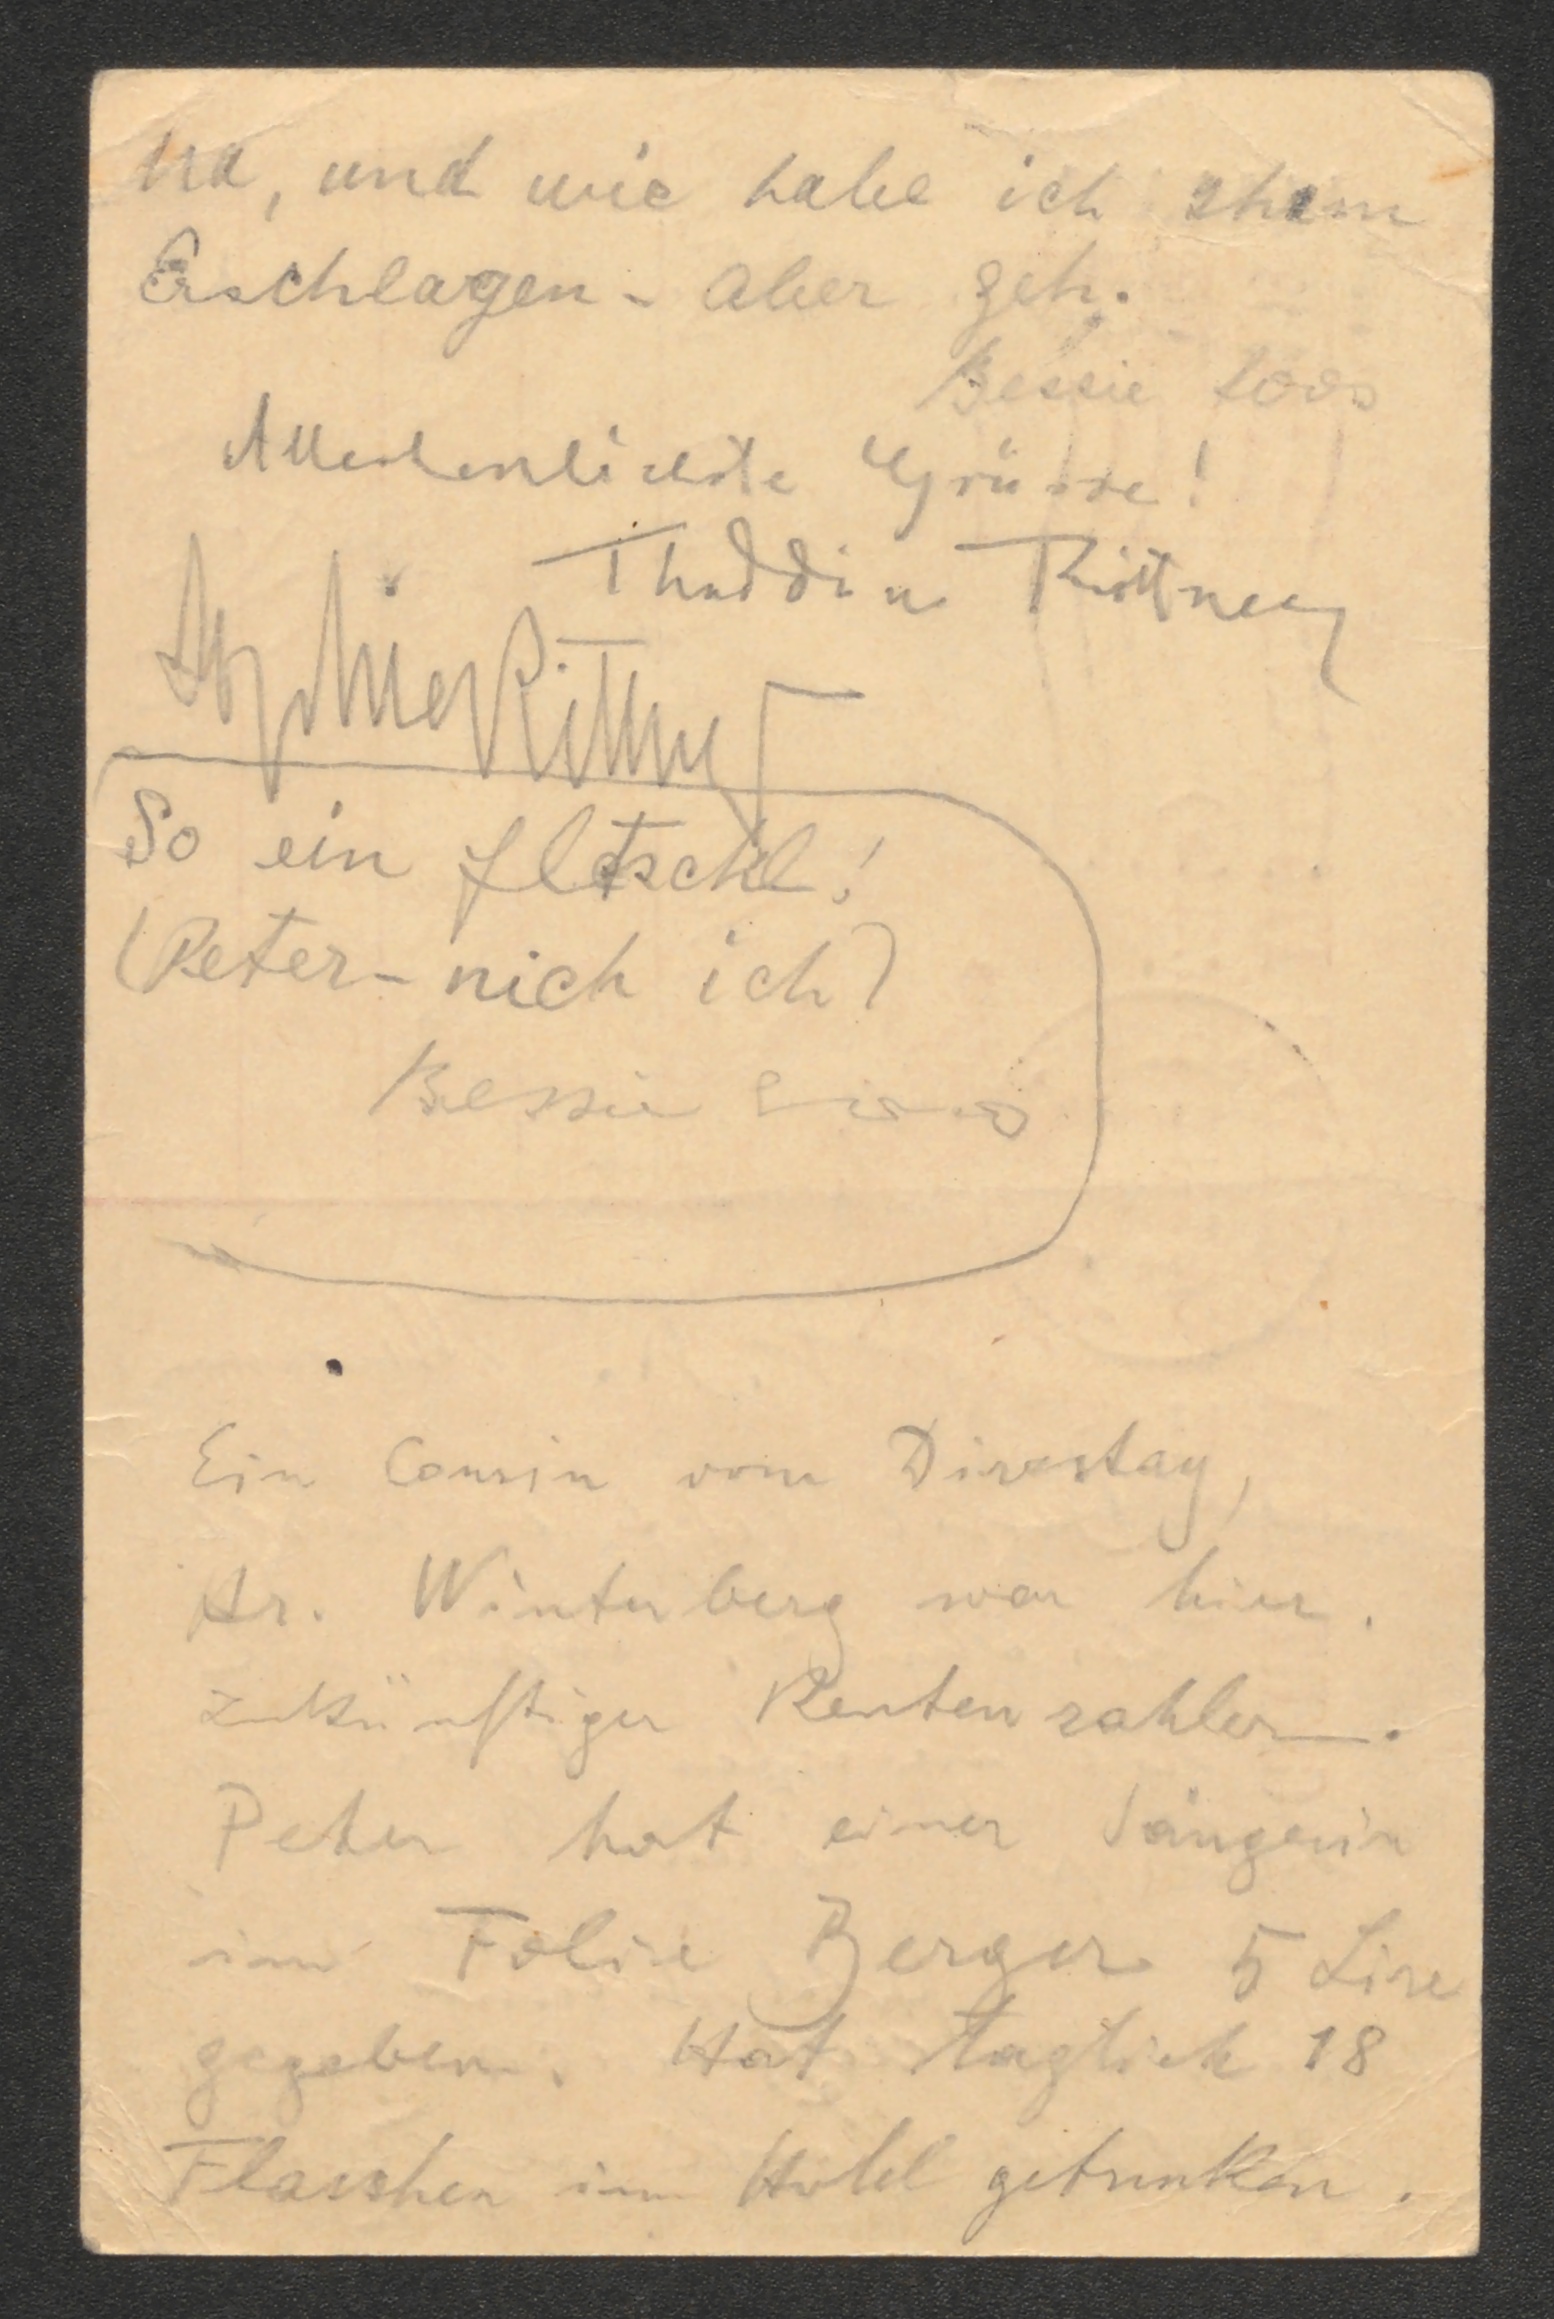 Na, und wie habe ich ihm
Erschlagen - aber geh.
Bessie Loos
Allerherzlichste Grüsse!
Thaddäus Rittner
Rittner
So ein fletschl!
(Peter - nich ich)
Bessie Loos
Ein Cousin vom Dirsztay,
Hr. Winterberg war hier.
Zukünftiger Rentenzahler.
Peter hat einer Sängerin
im Folise Berger 5 Lire
gegeben. Hat täglich 18
Flaschen im Hotel getrunken.